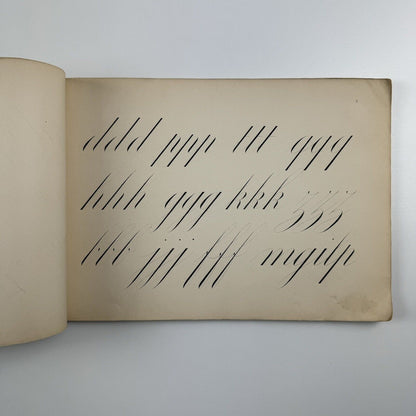 ddd ppp ttt qqq
hhh ggg kkk zzz
bbb jjj fff mgilp